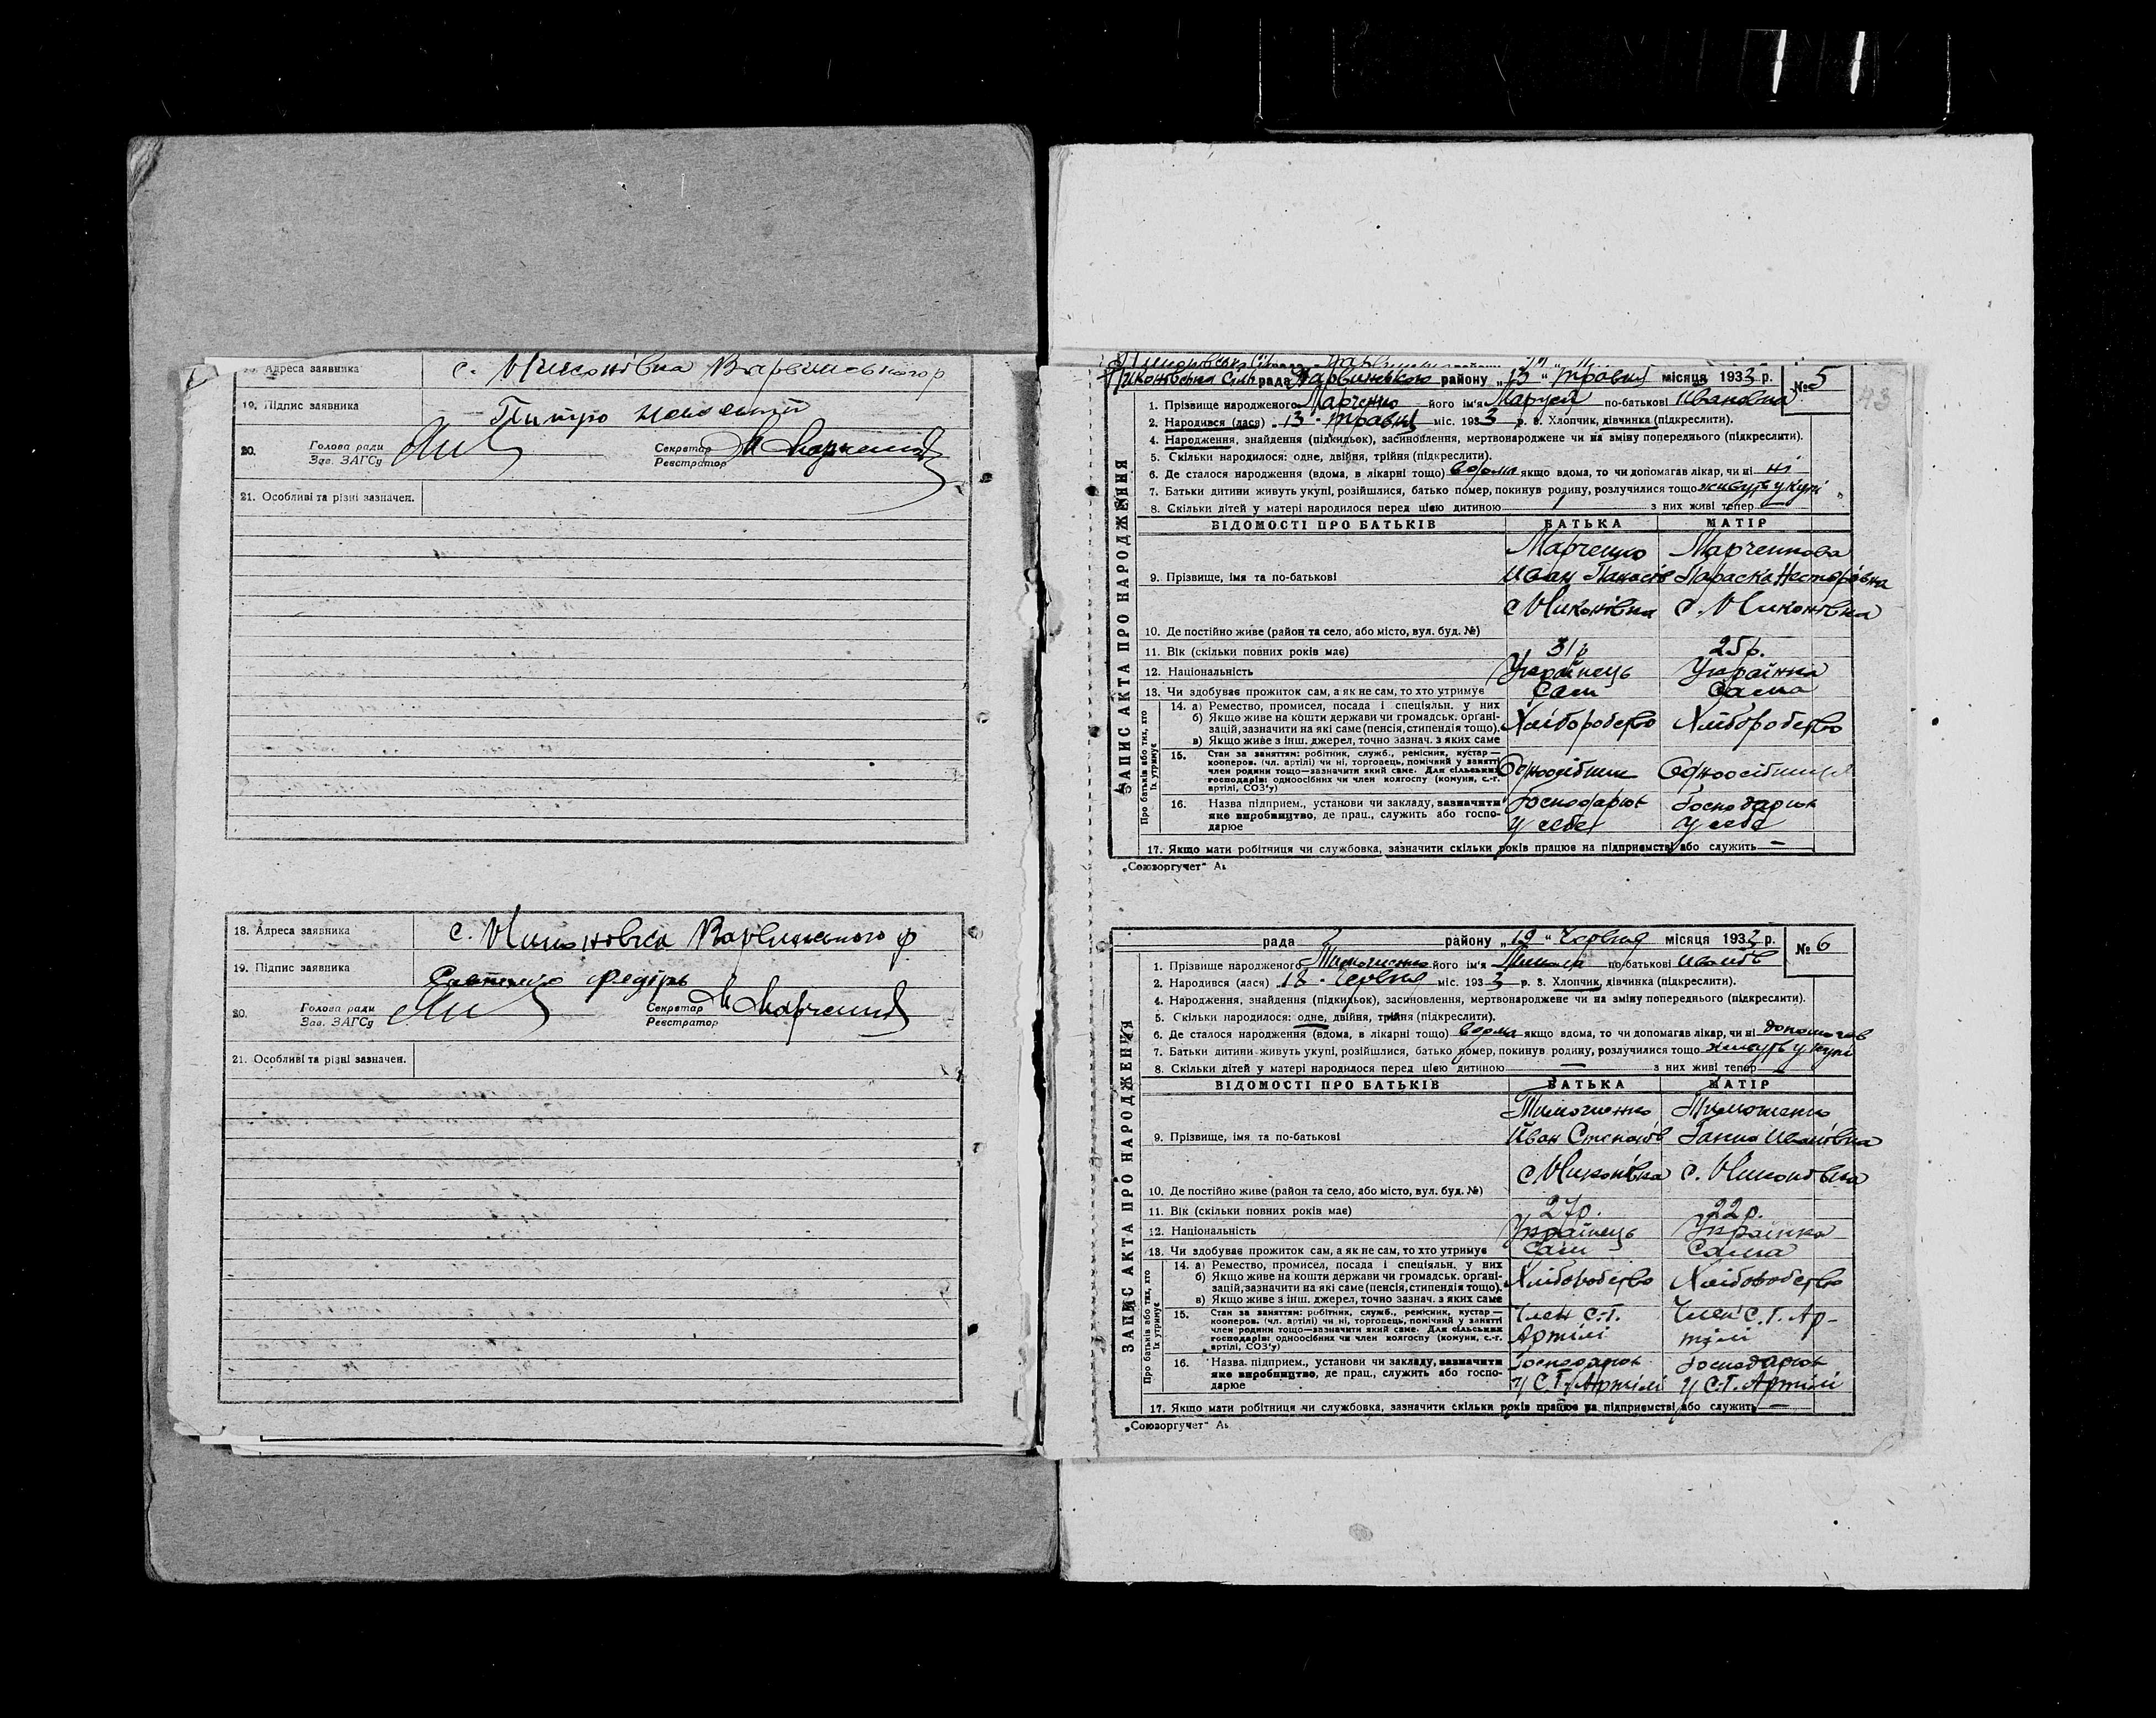 Адреса заявника с. Миконівка Варвинського р
19. Підпис заявника Питро
20. Голова ради Секретар Марченко
Зав. ЗАГСу Реєстратор
21. Особливі та різні зазначен.
18. Адреса заявника с. Миконовка Варвинського р
19. Підпис заявника Федіръ
20. Голова ради Секретар Марченко
Зав. ЗАГСу Реєстратор
21. Особливі та різні зазначен.
рада Варвинського району „13“ травня місяця 1933 р. №5
43
1. Прізвище народженого Марченко його ім'я Маруся по-батькові Івановна
2. Народився (лася) „13“ травня міс. 1933 р. 3. Хлопчик, дівчинка (підкреслити).
4. Народження, знайдення (підкидьок), засиновлення, мертвонароджене чи на зміну попереднього (підкреслити).
5. Скільки народилося: одне, двійня, трійня (підкреслити).
6. Де сталося народження (вдома, в лікарні тощо) вдома якщо вдома, то чи допомагав лікар, чи ні ні
7. Батьки дитини живуть укупі, розійшлися, батько помер, покинув родину, розлучилися тощо живуть укупі
8. Скільки дітей у матері народилося перед цією дитиною 1 з них живі тепер
ЗАПИС АКТА ПРО НАРОДЖЕННЯ
ВІДОМОСТІ ПРО БАТЬКІВ БАТЬКА МАТІР
Марченко Марченкова
9. Прізвище, імя та по-батькові Иван Панасів Параска Несторівна
с Миконівка с. Миконівка
10. Де постійно живе (район та село, або місто, вул. буд. №)
11. Вік (скільки повних років має) 31р 25р.
12. Національність Українець Українка
13. Чи здобуває прожиток сам, а як не сам, то хто утримує Сам Сама
Про батьків або тих, хто їх утримує
14. а) Ремество, промисел, посада і спеціяльн. у них
б) Якщо живе на кошти держави чи громадськ. органі-
зацій, зазначити на які саме (пенсія, стипендія тощо). Хліборобство Хліборобство
в) Якщо живе з інш. джерел, точно зазнач. з яких саме
15. Стан за заняттям: робітник, служб., ремісник, кустар —
кооперов. (чл. артілі) чи ні, торговець, помічний у занятті
член родини тощо—зазначити який саме. Для сільських Одноосібник Одноосібниця
господарів: одноосібних чи член колгоспу (комуни, с.-г.
артілі, СОЗ'у)
16. Назва підприєм., установи чи закладу, зазначити Господарює Господарює
яке виробництво, де прац., служить або госпо-
дарює у себе у себе
17. Якщо мати робітниця чи службовка, зазначити скільки років працює на підприємстві або служить —
„Союзоргучет“
рада району „19“ Червня місяця 1933 р. №6
1. Прізвище народженого Тимошенко його ім'я Микола по-батькові Иванів
2. Народився (лася) „18“ Червня міс. 1933 р. 3. Хлопчик, дівчинка (підкреслити).
4. Народження, знайдення (підкидьок), засиновлення, мертвонароджене чи на зміну попереднього (підкреслити).
5. Скільки народилося: одне, двійня, трійня (підкреслити).
6. Де сталося народження (вдома, в лікарні тощо) вдома якщо вдома, то чи допомагав лікар, чи ні допомагав
7. Батьки дитини живуть укупі, розійшлися, батько помер, покинув родину, розлучилися тощо живуть укупі
8. Скільки дітей у матері народилося перед цією дитиною — з них живі тепер —
ЗАПИС АКТА ПРО НАРОДЖЕННЯ
ВІДОМОСТІ ПРО БАТЬКІВ БАТЬКА МАТІР
Тимошенко Тимошенко
9. Прізвище, імя та по-батькові Иван Степанів Ганна Иванівна
с Миконівка с. Миконівка
10. Де постійно живе (район та село, або місто, вул. буд. №)
11. Вік (скільки повних років має) 27р. 22р.
12. Національність Українець Українка
13. Чи здобуває прожиток сам, а як не сам, то хто утримує Сам Сама
Про батьків або тих, хто їх утримує
14. а) Ремество, промисел, посада і спеціяльн. у них
б) Якщо живе на кошти держави чи громадськ. органі-
зацій, зазначити на які саме (пенсія, стипендія тощо). Хліборобство Хліборобство
в) Якщо живе з інш. джерел, точно зазнач. з яких саме
15. Стан за заняттям: робітник, служб., ремісник, кустар —
кооперов. (чл. артілі) чи ні, торговець, помічний у занятті Член С.-Г. Член С.Г. Ар-
член родини тощо—зазначити який саме. Для сільських
господарів: одноосібних чи член колгоспу (комуни, с.-г. Артілі тілі
артілі, СОЗ'у)
16. Назва підприєм., установи чи закладу, зазначити Господарює Господарює
яке виробництво, де прац., служить або госпо-
дарює у С.Г. Артілі у С.-Г. Артілі
17. Якщо мати робітниця чи службовка, зазначити скільки років працює на підприємстві або служить —
„Союзоргучет“